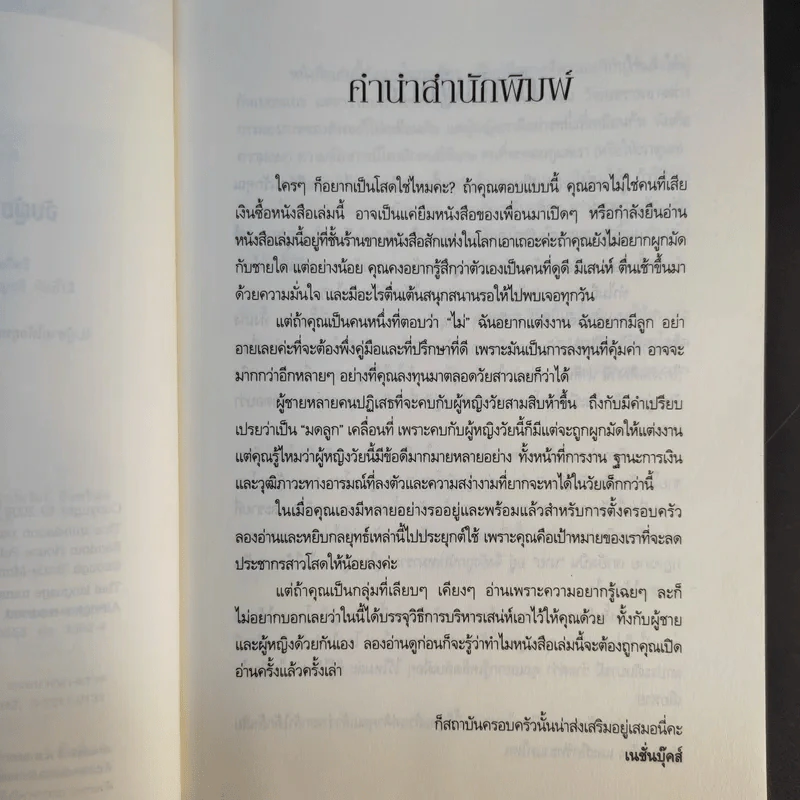 คำนำสำนักพิมพ์
ใครๆ ก็อยากเป็นโสดใช่ไหมคะ? ถ้าคุณตอบแบบนี้ คุณอาจไม่ใช่คนที่เสีย
เงินซื้อหนังสือเล่มนี้ อาจเป็นแค่ยืมหนังสือของเพื่อนมาเปิดๆ หรือกำลังยืนอ่าน
หนังสือเล่มนี้อยู่ที่ชั้นร้านขายหนังสือสักแห่งในโลกเอาเถอะค่ะถ้าคุณยังไม่อยากผูกมัด
กับชายใด แต่อย่างน้อย คุณคงอยากรู้สึกว่าตัวเองเป็นคนที่ดูดี มีเสน่ห์ ตื่นเช้าขึ้นมา
ด้วยความมั่นใจ และมีอะไรตื่นเต้นสนุกสนานรอให้ไปพบเจอทุกวัน
แต่ถ้าคุณเป็นคนหนึ่งที่ตอบว่า "ไม่" ฉันอยากแต่งงาน ฉันอยากมีลูก อย่า
อายเลยค่ะที่จะต้องพึ่งคู่มือและที่ปรึกษาที่ดี เพราะมันเป็นการลงทุนที่คุ้มค่า อาจจะ
มากกว่าอีกหลายๆ อย่างที่คุณลงทุนมาตลอดวัยสาวเลยก็ว่าได้
ผู้ชายหลายคนปฏิเสธที่จะคบกับผู้หญิงวัยสามสิบห้าขึ้น ถึงกับมีคำเปรียบ
เปรยว่าเป็น "มดลูก" เคลื่อนที่ เพราะคบกับผู้หญิงวัยนี้ก็มีแต่จะถูกผูกมัดให้แต่งงาน
แต่คุณรู้ไหมว่าผู้หญิงวัยนี้มีข้อดีมากมายหลายอย่าง ทั้งหน้าที่การงาน ฐานะการเงิน
และวุฒิภาวะทางอารมณ์ที่ลงตัวและความสง่างามที่ยากจะหาได้ในวัยเด็กกว่านี้
ในเมื่อคุณเองมีหลายอย่างรออยู่และพร้อมแล้วสำหรับการตั้งครอบครัว
ลองอ่านและหยิบกลยุทธ์เหล่านี้ไปประยุกต์ใช้ เพราะคุณคือเป้าหมายของเราที่จะลด
ประชากรสาวโสดให้น้อยลงค่ะ
แต่ถ้าคุณเป็นกลุ่มที่เลียบๆ เคียงๆ อ่านเพราะความอยากรู้เฉยๆ ละก็
ไม่อยากบอกเลยว่าในนี้ได้บรรจุวิธีการบริหารเสน่ห์เอาไว้ให้คุณด้วย ทั้งกับผู้ชาย
และผู้หญิงด้วยกันเอง ลองอ่านดูก่อนก็จะรู้ว่าทำไมหนังสือเล่มนี้จะต้องถูกคุณเปิด
อ่านครั้งแล้วครั้งเล่า
ก็สถาบันครอบครัวนั้นน่าส่งเสริมอยู่เสมอนี่คะ
เนชั่นบุ๊คส์